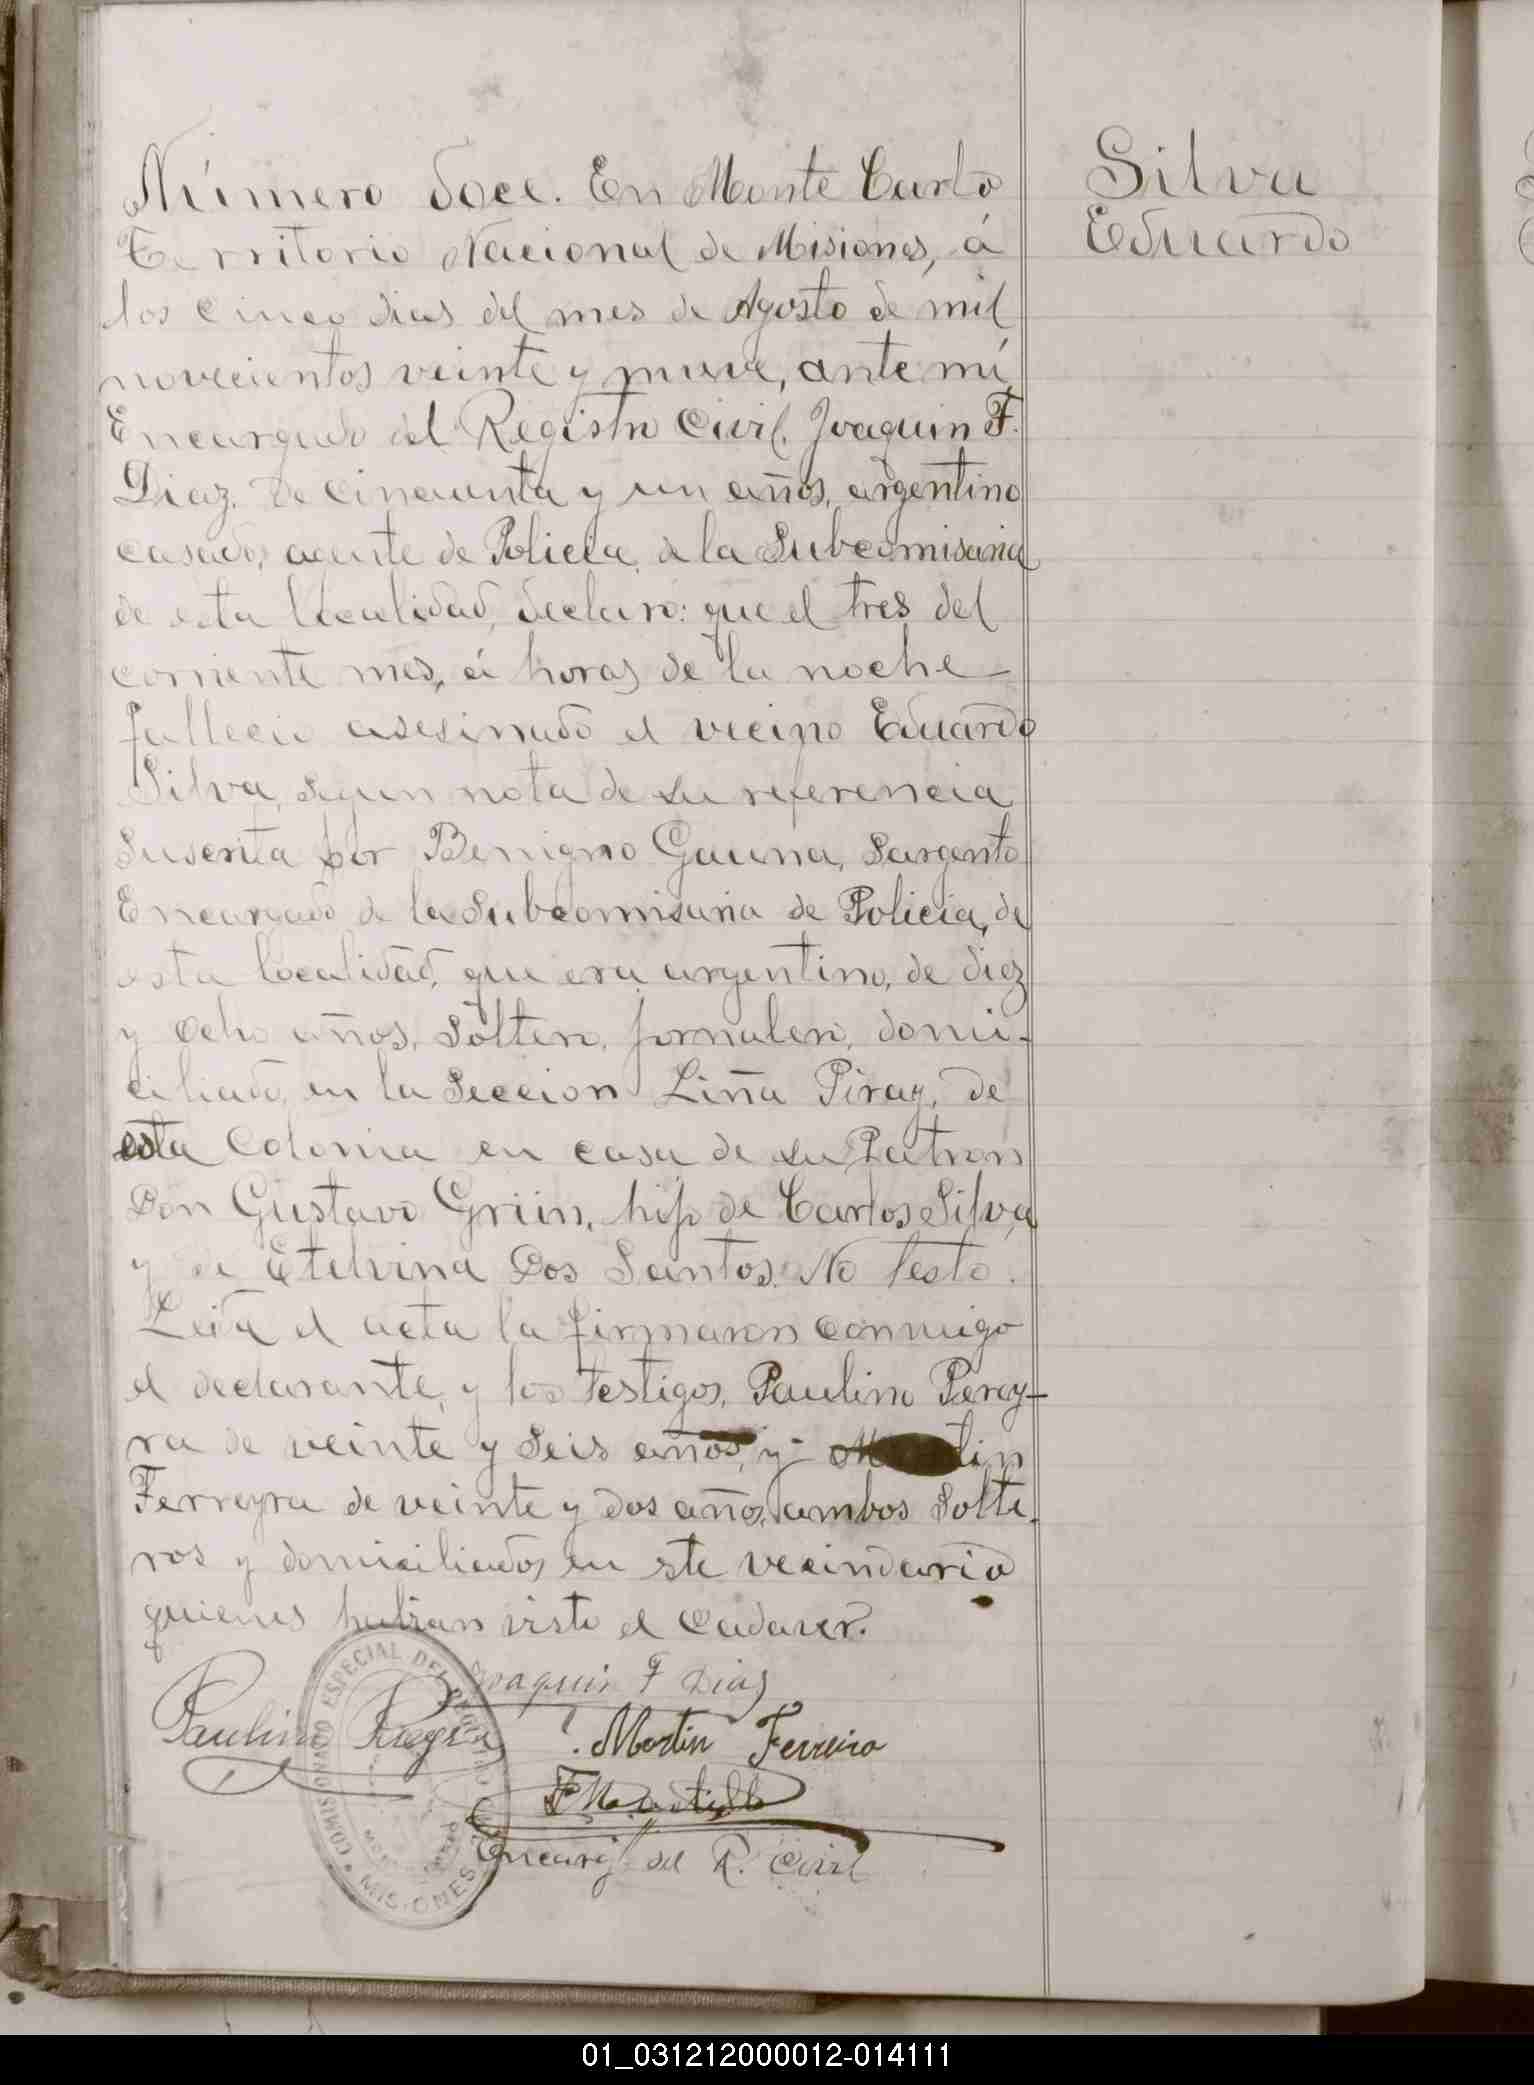 Número doce. En Monte Carlo
Territorio Nacional de Misiones, á
los cinco dias del mes de Agosto de mil
novecientos veinte y nueve, ante mí,
Encargado del Registro Civil, Joaquin F.
Diaz, de cincuenta y un años, argentino
casado, agente de Policia, de la Subcomisaria
de esta localidad, declaró: que el tres del
corriente mes, á horas de la noche
falleció asesinado el vecino Eduardo
Silva, segun nota de su referencia
suscrita por Benigno Gauna, Sargento
Encargado de la Subcomisaria de Policia, de
esta localidad, que era argentino, de diez
y ocho años, soltero, jornalero, domi-
ciliado, en la Seccion Liña Piray, de
esta Colonia en casa de su Patron
Don Gustavo Grün, hijo de Carlos Silva,
y de Etelvina Dos Santos. No testó.
Leida el acta la firmaron conmigo
el declarante, y los testigos, Paulino Perey-
ra de veinte y seis años, y
Ferreyra de veinte y dos años, ambos solte-
ros y domiciliados en este vecindario
quienes habian visto el cadaver.
Joaquin F Diaz
Paulino
Martin Ferreira
Encarg del R. Civil
COMISIONADO ESPECIAL DEL REGISTRO
MISIONES
Silva
Eduardo
01_031212000012-014111